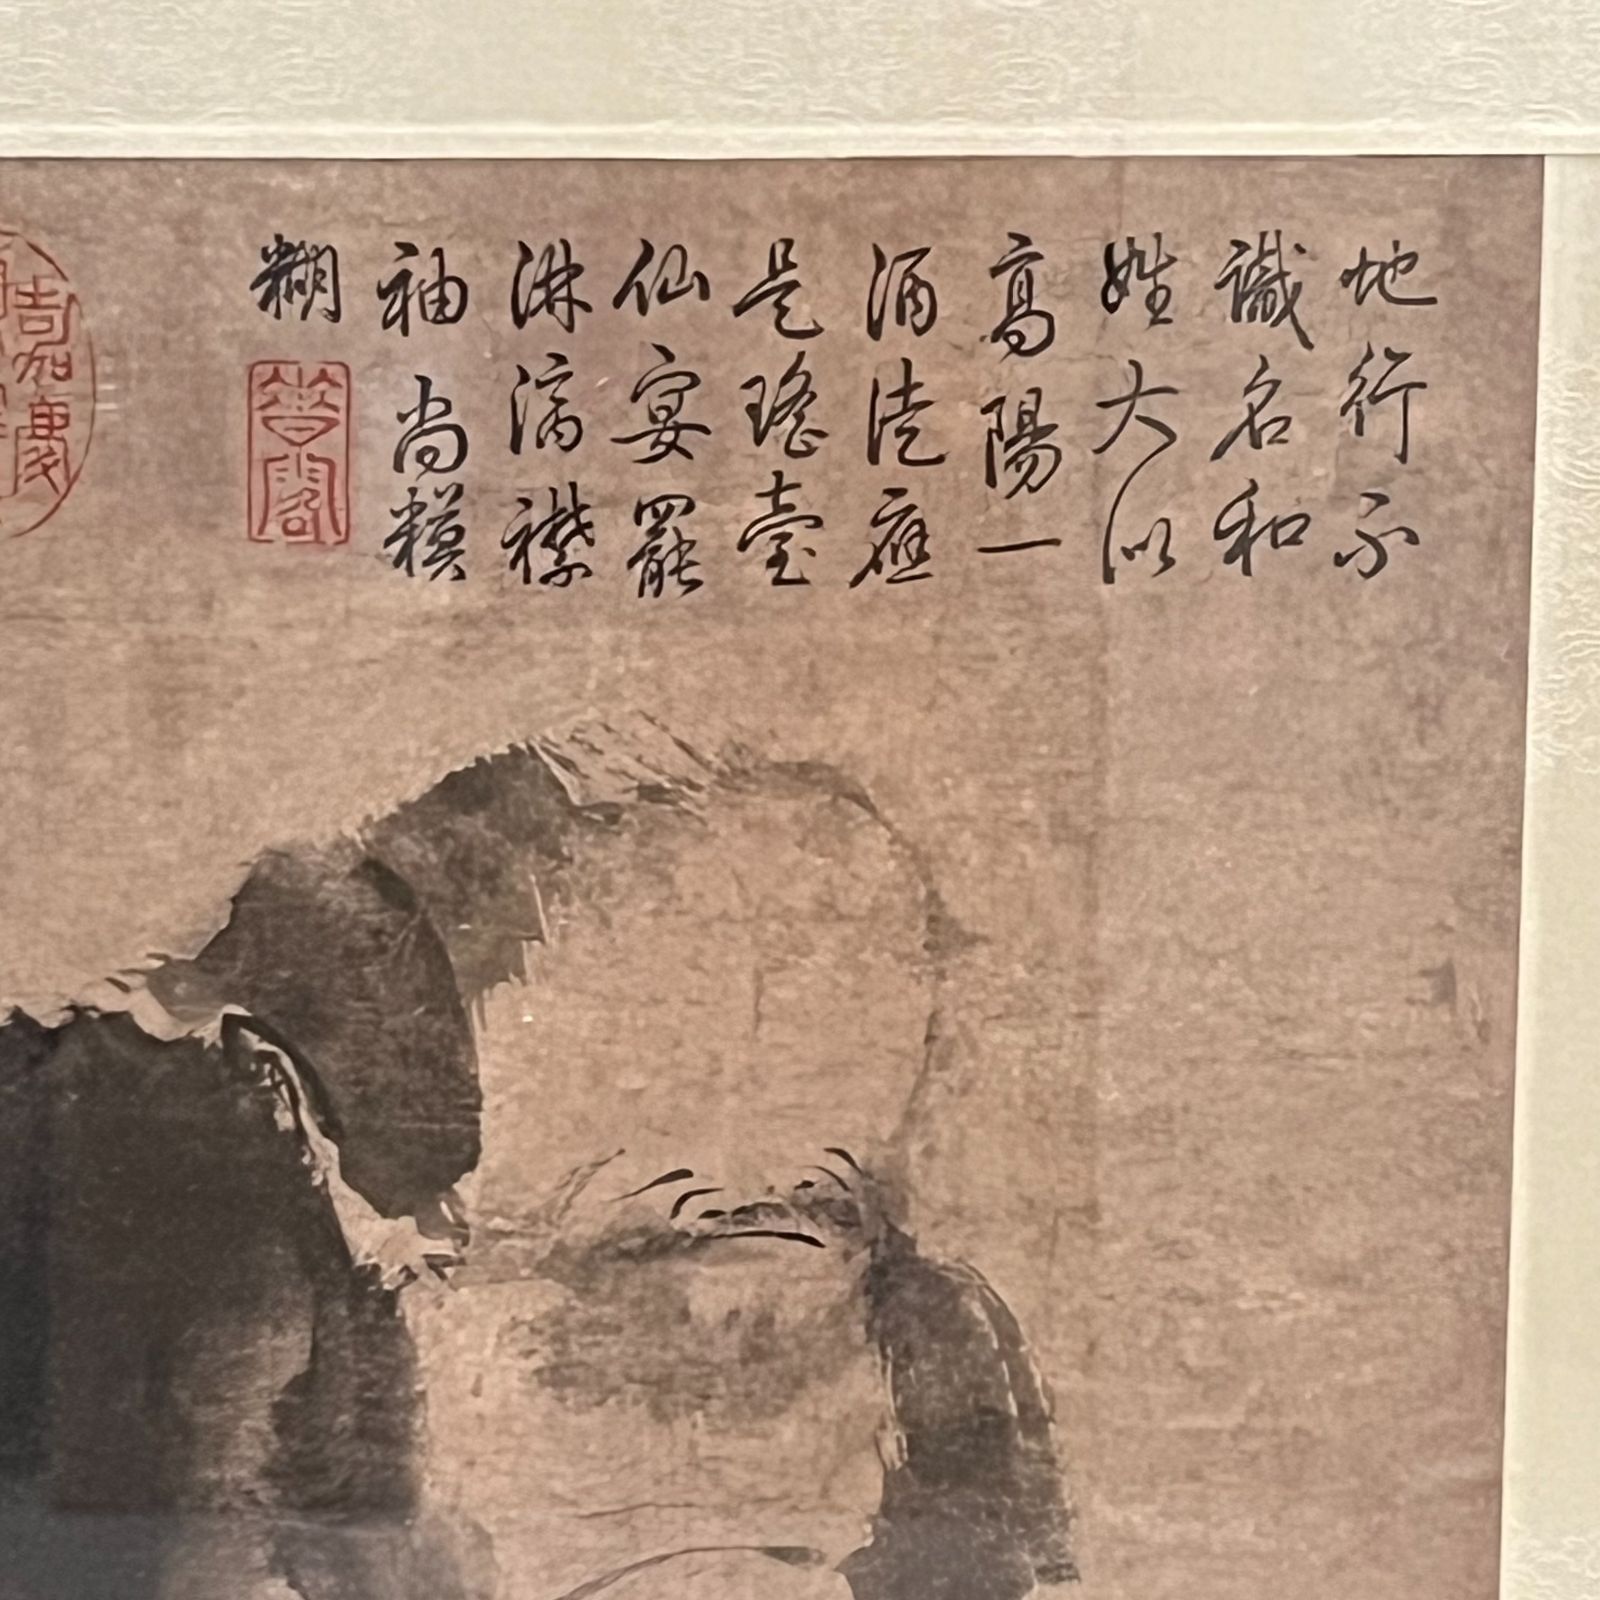 地行不
識名和
姓大似
高陽一
酒徒應
是瑤臺
仙宴罷
淋漓襟
袖尚糢
糊
嘉慶